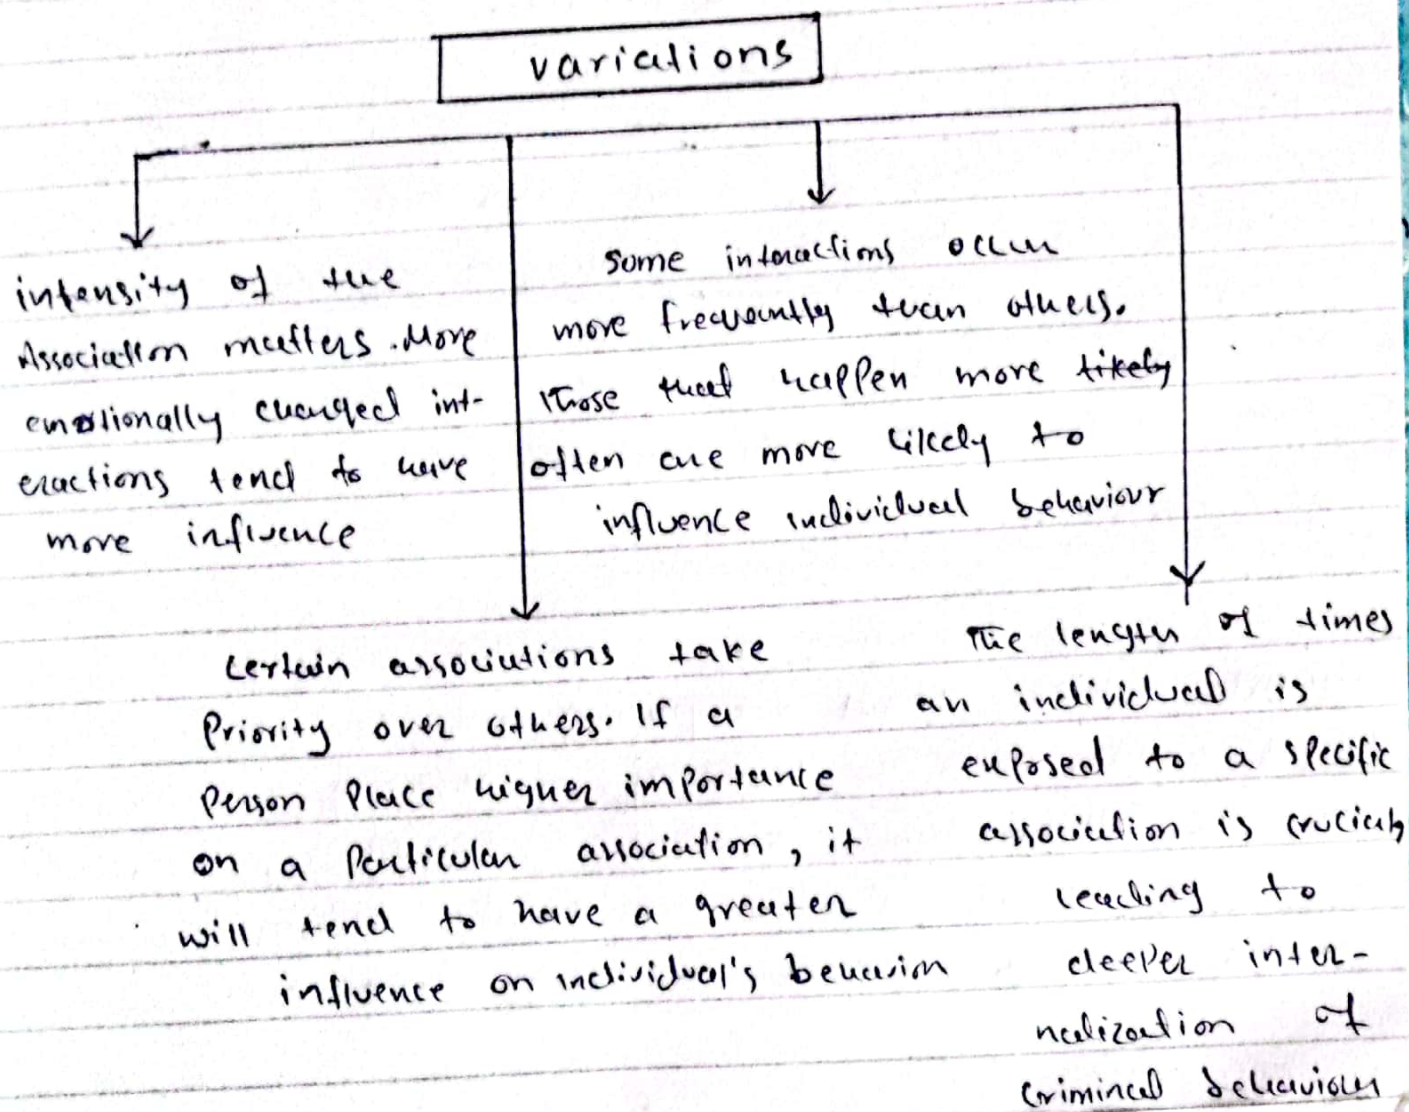 variations
intensity of the
Association matters. More
emotionally charged int-
eractions tend to have
more influence
some interactions occur
more frequently than others.
those that happen more likely
often are more likely to
influence individual behaviour
certain associations take
Priority over others. If a
person place higher importance
on a particular association, it
will tend to have a greater
influence on individual's behavior
The length of times
an individual is
exposed to a specific
association is crucial,
leading to
deeper inter-
nalization of
criminal behaviour